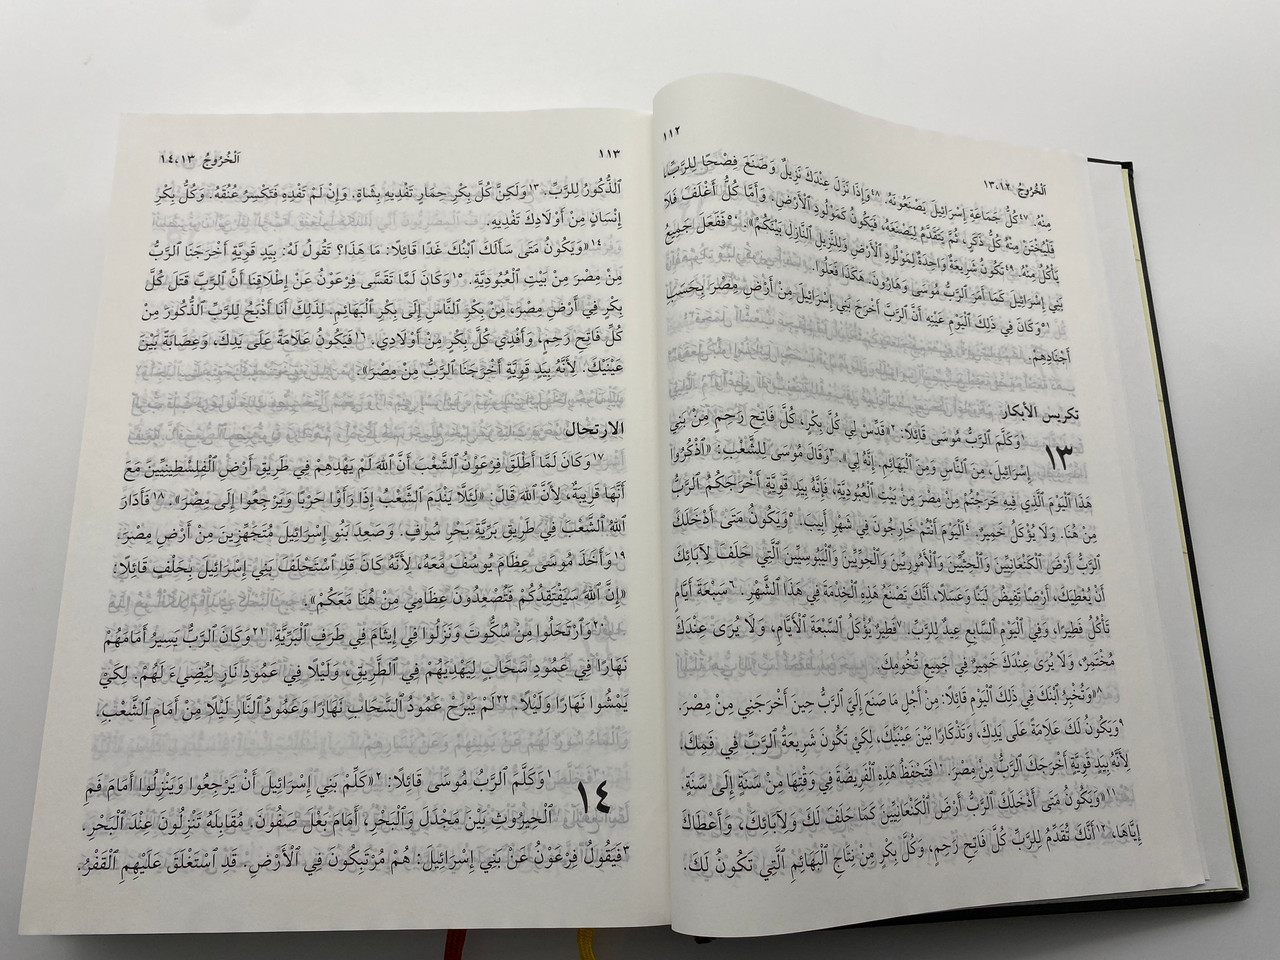 ١١٢
اَلْخُرُوجُ ١٣،١٢
مِنْهُ. ٤٧كُلُّ جَمَاعَةِ إِسْرَائِيلَ يَصْنَعُونَهُ. ٤٨وَإِذَا نَزَلَ عِنْدَكَ نَزِيلٌ وَصَنَعَ فِصْحًا لِلرَّبِّ،
فَلْيُخْتَنْ مِنْهُ كُلُّ ذَكَرٍ، ثُمَّ يَتَقَدَّمُ لِيَصْنَعَهُ، فَيَكُونُ كَمَوْلُودِ ٱلْأَرْضِ. وَأَمَّا كُلُّ أَغْلَفَ فَلَا
يَأْكُلُ مِنْهُ. ٤٩تَكُونُ شَرِيعَةٌ وَاحِدَةٌ لِمَوْلُودِ ٱلْأَرْضِ وَلِلنَّزِيلِ ٱلنَّازِلِ بَيْنَكُمْ». ٥٠فَفَعَلَ جَمِيعُ
بَنِي إِسْرَائِيلَ كَمَا أَمَرَ ٱلرَّبُّ مُوسَى وَهَارُونَ. هَكَذَا فَعَلُوا.
٥١وَكَانَ فِي ذَلِكَ ٱلْيَوْمِ عَيْنِهِ أَنَّ ٱلرَّبَّ أَخْرَجَ بَنِي إِسْرَائِيلَ مِنْ أَرْضِ مِصْرَ بِحَسَبِ
أَجْنَادِهِمْ.
تكريس الأبكار
١٣ ١وَكَلَّمَ ٱلرَّبُّ مُوسَى قَائِلًا: ٢«قَدِّسْ لِي كُلَّ بِكْرٍ، كُلَّ فَاتِحِ رَحِمٍ مِنْ بَنِي
إِسْرَائِيلَ، مِنَ ٱلنَّاسِ وَمِنَ ٱلْبَهَائِمِ. إِنَّهُ لِي». ٣وَقَالَ مُوسَى لِلشَّعْبِ: «ٱذْكُرُوا
هَذَا ٱلْيَوْمَ ٱلَّذِي فِيهِ خَرَجْتُمْ مِنْ مِصْرَ مِنْ بَيْتِ ٱلْعُبُودِيَّةِ، فَإِنَّهُ بِيَدٍ قَوِيَّةٍ أَخْرَجَكُمُ ٱلرَّبُّ
مِنْ هُنَا. وَلَا يُؤْكَلُ خَمِيرٌ. ٤اَلْيَوْمَ أَنْتُمْ خَارِجُونَ فِي شَهْرِ أَبِيبَ. ٥وَيَكُونُ مَتَى أَدْخَلَكَ
ٱلرَّبُّ أَرْضَ ٱلْكَنْعَانِيِّينَ وَٱلْحِثِّيِّينَ وَٱلْأَمُورِيِّينَ وَٱلْحِوِّيِّينَ وَٱلْيَبُوسِيِّينَ ٱلَّتِي حَلَفَ لِآبَائِكَ
أَنْ يُعْطِيَكَ، أَرْضًا تَفِيضُ لَبَنًا وَعَسَلًا، أَنَّكَ تَصْنَعُ هَذِهِ ٱلْخِدْمَةَ فِي هَذَا ٱلشَّهْرِ. ٦سَبْعَةَ أَيَّامٍ
تَأْكُلُ فَطِيرًا، وَفِي ٱلْيَوْمِ ٱلسَّابِعِ عِيدٌ لِلرَّبِّ. ٧فَطِيرٌ يُؤْكَلُ ٱلسَّبْعَةَ ٱلْأَيَّامِ، وَلَا يُرَى عِنْدَكَ
مُخْتَمِرٌ، وَلَا يُرَى عِنْدَكَ خَمِيرٌ فِي جَمِيعِ تُخُومِكَ.
٨«وَتُخْبِرُ ٱبْنَكَ فِي ذَلِكَ ٱلْيَوْمِ قَائِلًا: مِنْ أَجْلِ مَا صَنَعَ إِلَيَّ ٱلرَّبُّ حِينَ أَخْرَجَنِي مِنْ مِصْرَ.
٩وَيَكُونُ لَكَ عَلَامَةً عَلَى يَدِكَ، وَتَذْكَارًا بَيْنَ عَيْنَيْكَ، لِكَيْ تَكُونَ شَرِيعَةُ ٱلرَّبِّ فِي فَمِكَ.
لِأَنَّهُ بِيَدٍ قَوِيَّةٍ أَخْرَجَكَ ٱلرَّبُّ مِنْ مِصْرَ. ١٠فَتَحْفَظُ هَذِهِ ٱلْفَرِيضَةَ فِي وَقْتِهَا مِنْ سَنَةٍ إِلَى سَنَةٍ.
١١«وَيَكُونُ مَتَى أَدْخَلَكَ ٱلرَّبُّ أَرْضَ ٱلْكَنْعَانِيِّينَ كَمَا حَلَفَ لَكَ وَلِآبَائِكَ، وَأَعْطَاكَ
إِيَّاهَا، ١٢أَنَّكَ تُقَدِّمُ لِلرَّبِّ كُلَّ فَاتِحِ رَحِمٍ، وَكُلَّ بِكْرٍ مِنْ نِتَاجِ ٱلْبَهَائِمِ ٱلَّتِي تَكُونُ لَكَ.
١١٣
اَلْخُرُوجُ ١٤،١٣
ٱلذُّكُورُ لِلرَّبِّ. ١٣وَلَكِنَّ كُلَّ بِكْرِ حِمَارٍ تَفْدِيهِ بِشَاةٍ، وَإِنْ لَمْ تَفْدِهِ فَتَكْسِرُ عُنُقَهُ. وَكُلُّ بِكْرِ
إِنْسَانٍ مِنْ أَوْلَادِكَ تَفْدِيهِ.
١٤«وَيَكُونُ مَتَى سَأَلَكَ ٱبْنُكَ غَدًا قَائِلًا: مَا هَذَا؟ تَقُولُ لَهُ: بِيَدٍ قَوِيَّةٍ أَخْرَجَنَا ٱلرَّبُّ
مِنْ مِصْرَ مِنْ بَيْتِ ٱلْعُبُودِيَّةِ. ١٥وَكَانَ لَمَّا تَقَسَّى فِرْعَوْنُ عَنْ إِطْلَاقِنَا أَنَّ ٱلرَّبَّ قَتَلَ كُلَّ
بِكْرٍ فِي أَرْضِ مِصْرَ، مِنْ بِكْرِ ٱلنَّاسِ إِلَى بِكْرِ ٱلْبَهَائِمِ. لِذَلِكَ أَنَا أَذْبَحُ لِلرَّبِّ ٱلذُّكُورَ مِنْ
كُلِّ فَاتِحِ رَحِمٍ، وَأَفْدِي كُلَّ بِكْرٍ مِنْ أَوْلَادِي. ١٦فَيَكُونُ عَلَامَةً عَلَى يَدِكَ، وَعِصَابَةً بَيْنَ
عَيْنَيْكَ. لِأَنَّهُ بِيَدٍ قَوِيَّةٍ أَخْرَجَنَا ٱلرَّبُّ مِنْ مِصْرَ».
الارتحال
١٧وَكَانَ لَمَّا أَطْلَقَ فِرْعَوْنُ ٱلشَّعْبَ أَنَّ ٱللهَ لَمْ يَهْدِهِمْ فِي طَرِيقِ أَرْضِ ٱلْفِلِسْطِينِيِّينَ مَعَ
أَنَّهَا قَرِيبَةٌ، لِأَنَّ ٱللهَ قَالَ: «لِئَلَّا يَنْدَمَ ٱلشَّعْبُ إِذَا رَأَوْا حَرْبًا وَيَرْجِعُوا إِلَى مِصْرَ». ١٨فَأَدَارَ
ٱللهُ ٱلشَّعْبَ فِي طَرِيقِ بَرِّيَّةِ بَحْرِ سُوفٍ. وَصَعِدَ بَنُو إِسْرَائِيلَ مُتَجَهِّزِينَ مِنْ أَرْضِ مِصْرَ.
١٩وَأَخَذَ مُوسَى عِظَامَ يُوسُفَ مَعَهُ، لِأَنَّهُ كَانَ قَدِ ٱسْتَحْلَفَ بَنِي إِسْرَائِيلَ بِحَلْفٍ قَائِلًا:
«إِنَّ ٱللهَ سَيَفْتَقِدُكُمْ فَتُصْعِدُونَ عِظَامِي مِنْ هُنَا مَعَكُمْ».
٢٠وَٱرْتَحَلُوا مِنْ سُكُّوتَ وَنَزَلُوا فِي إِيثَامَ فِي طَرَفِ ٱلْبَرِّيَّةِ. ٢١وَكَانَ ٱلرَّبُّ يَسِيرُ أَمَامَهُمْ
نَهَارًا فِي عَمُودِ سَحَابٍ لِيَهْدِيَهُمْ فِي ٱلطَّرِيقِ، وَلَيْلًا فِي عَمُودِ نَارٍ لِيُضِيءَ لَهُمْ. لِكَيْ
يَمْشُوا نَهَارًا وَلَيْلًا. ٢٢لَمْ يَبْرَحْ عَمُودُ ٱلسَّحَابِ نَهَارًا وَعَمُودُ ٱلنَّارِ لَيْلًا مِنْ أَمَامِ ٱلشَّعْبِ.
١٤ ١وَكَلَّمَ ٱلرَّبُّ مُوسَى قَائِلًا: ٢«كَلِّمْ بَنِي إِسْرَائِيلَ أَنْ يَرْجِعُوا وَيَنْزِلُوا أَمَامَ فَمِ
ٱلْحِيرُوثِ بَيْنَ مَجْدَلَ وَٱلْبَحْرِ، أَمَامَ بَعْلَ صَفُونَ. مُقَابِلَهُ تَنْزِلُونَ عِنْدَ ٱلْبَحْرِ.
٣فَيَقُولُ فِرْعَوْنُ عَنْ بَنِي إِسْرَائِيلَ: هُمْ مُرْتَبِكُونَ فِي ٱلْأَرْضِ. قَدِ ٱسْتَغْلَقَ عَلَيْهِمِ ٱلْقَفْرُ.